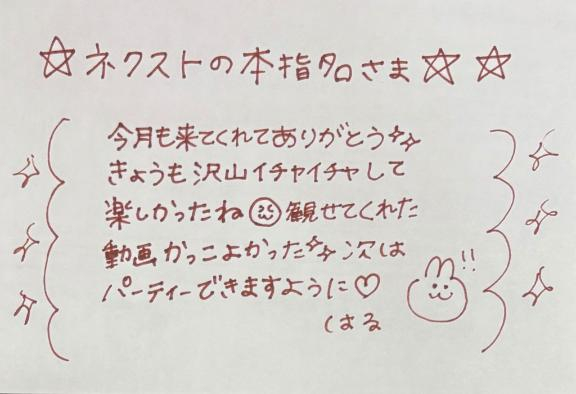 ☆ネクストの本指名さま☆☆
今月も来てくれてありがとう✨
きょうも沢山イチャイチャして
楽しかったね 観せてくれた
動画かっこよかった✨次は
パーティーできますように♡
!!
はる